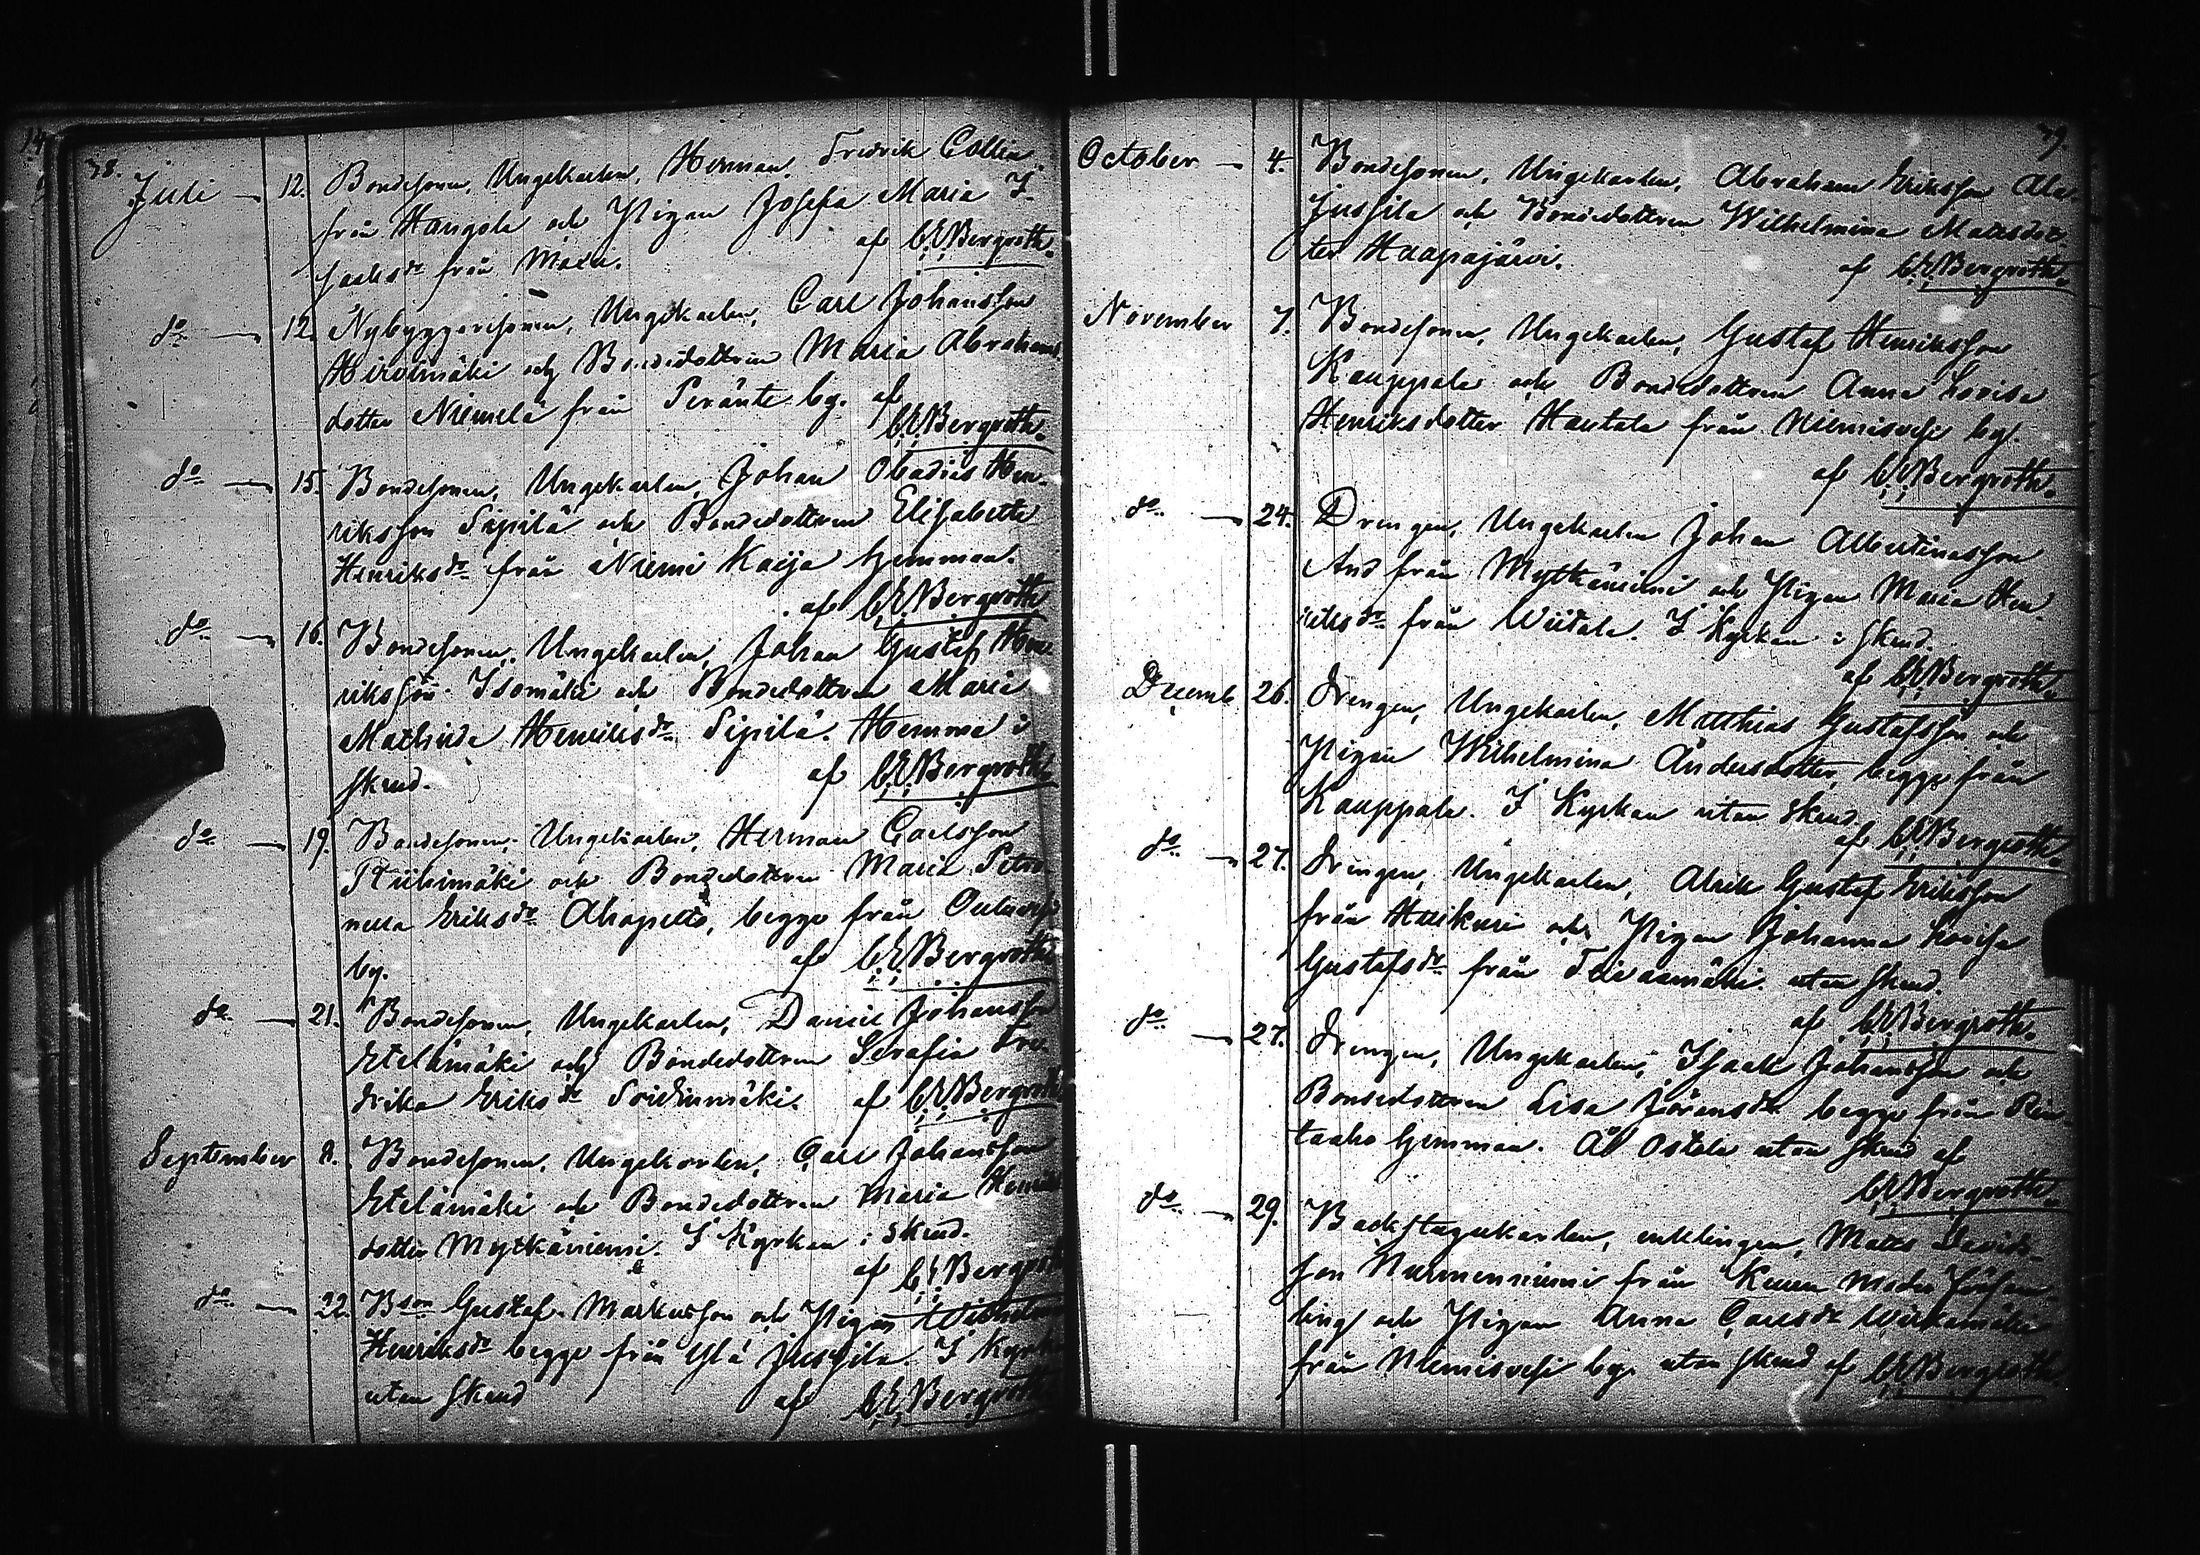 38.
Juli — 12. Bondesonen, Ungekarlen, Herman Fredrik
från Hangola och Pigan Josefa Maria I-
sacksdr från
af C.E. Bergroth.
do — 12. Nybyggaresonen, Ungekarlen, Carl Johansson
Hirvimäki och Bondedottren Maria Abrahams
dotter Niemelä från Peränte by. af
C.E. Bergroth.
do — 15. Bondesonen, Ungekarlen, Johan Obadias Hen-
riksson Sipilä och Bondedottren Elisabeth
Henriksdr från Niemi Kaija hemman.
af C.E. Bergroth
do — 16. Bondesonen, Ungekarlen, Johan Gustaf Hen-
riksson Isomäki och Bondedottren Maria
Mathilda Henriksdr Sipilä. Hemma i
skrud. af C.E. Bergroth
do — 19. Bondesonen, Ungekarlen, Herman Carlsson
Riihimäki och Bondedottren Maria Petro-
nella Eriksdr Ahopelto, begge från
by. af C.E. Bergroth
do — 21. Bondesonen, Ungekarlen, Daniel Johansson
Etelämäki och Bondedottren Serafia Fre-
drika Eriksdr af C.E. Bergroth
September 8. Bondesonen, Ungekarlen, Carl Johansson
Etelämäki och Bondedottren Maria Henriks
dotter Mytkäniemi. I Kyrkan i skrud.
af C.E. Bergroth
do — 22. Bson Gustaf Markusson och Pigan Wilhelmina
Henriksdr begge från Ylä Jussila. I Kyrkan
utan skrud af C.E. Bergroth
39.
October — 4. Bondesonen, Ungekarlen, Abraham Eriksson Ala-
Jussila och Bondedottren Wilhelmina Matsdot-
ter Haapajärvi.
af C.E. Bergroth.
November 7. Bondesonen, Ungekarlen, Gustaf Henriksson
Kauppala och Bondedottren Anna Lovisa
Henriksdotter Hautala från Niemisvesi by.
af C.E. Bergroth.
do — 24. Drengen, Ungekarlen Johan Albertinasson
And från Mytkäniemi och Pigan Maria Hen-
riksdr från Wiitala. I Kyrkan i skrud.
af C.E. Bergroth.
Decemb 26. Drengen, Ungekarlen, Matthias Gustafsson och
Pigan Wilhelmina Andersdotter, begge från
Kauppala. I Kyrkan utan skrud.
af C.E. Bergroth.
do — 27. Drengen, Ungekarlen, Alrik Gustaf Eriksson
från och Pigan Johanna Lovisa
Gustafsdr från utan skrud.
af C.E. Bergroth.
do — 27. Drengen, Ungekarlen, Isaak Johansson och
Bondedottren Lisa Jöransdr begge från Rin-
taaho hemman. Å Ostola utan skrud af
C.E. Bergroth.
do — 29. Backstugukarlen, enklingen, Matts Davids-
son Nurmenniemi från
och Pigan Anna Carlsdr
från Niemisvesi by. utan skrud af C.E. Bergroth.